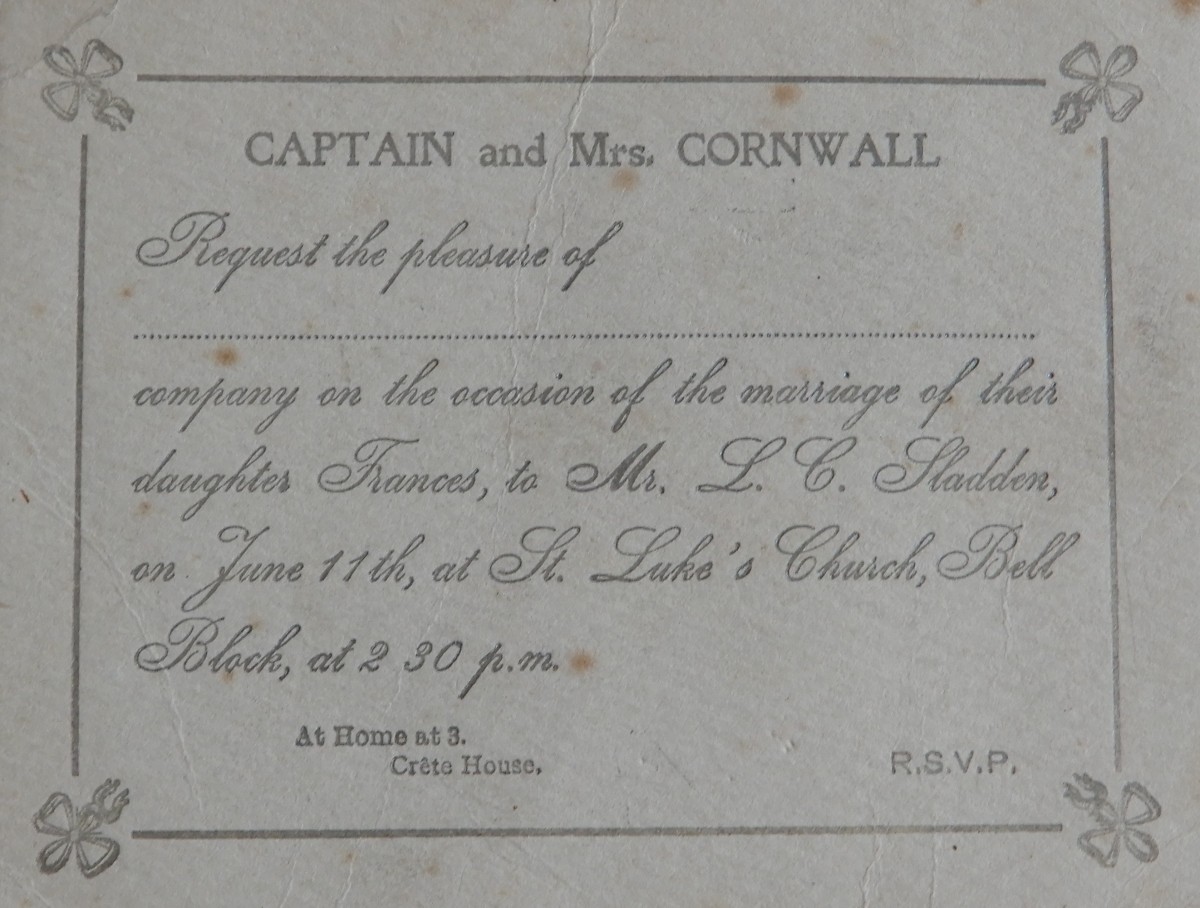 CAPTAIN and Mrs. CORNWALL
Request the pleasure of
company on the occasion of the marriage of their
daughter Frances, to Mr. L. C. Sladden,
on June 11th, at St. Luke's Church, Bell
Block, at 2 30 p.m.
At Home at 3.
Crête House.
R.S.V.P.